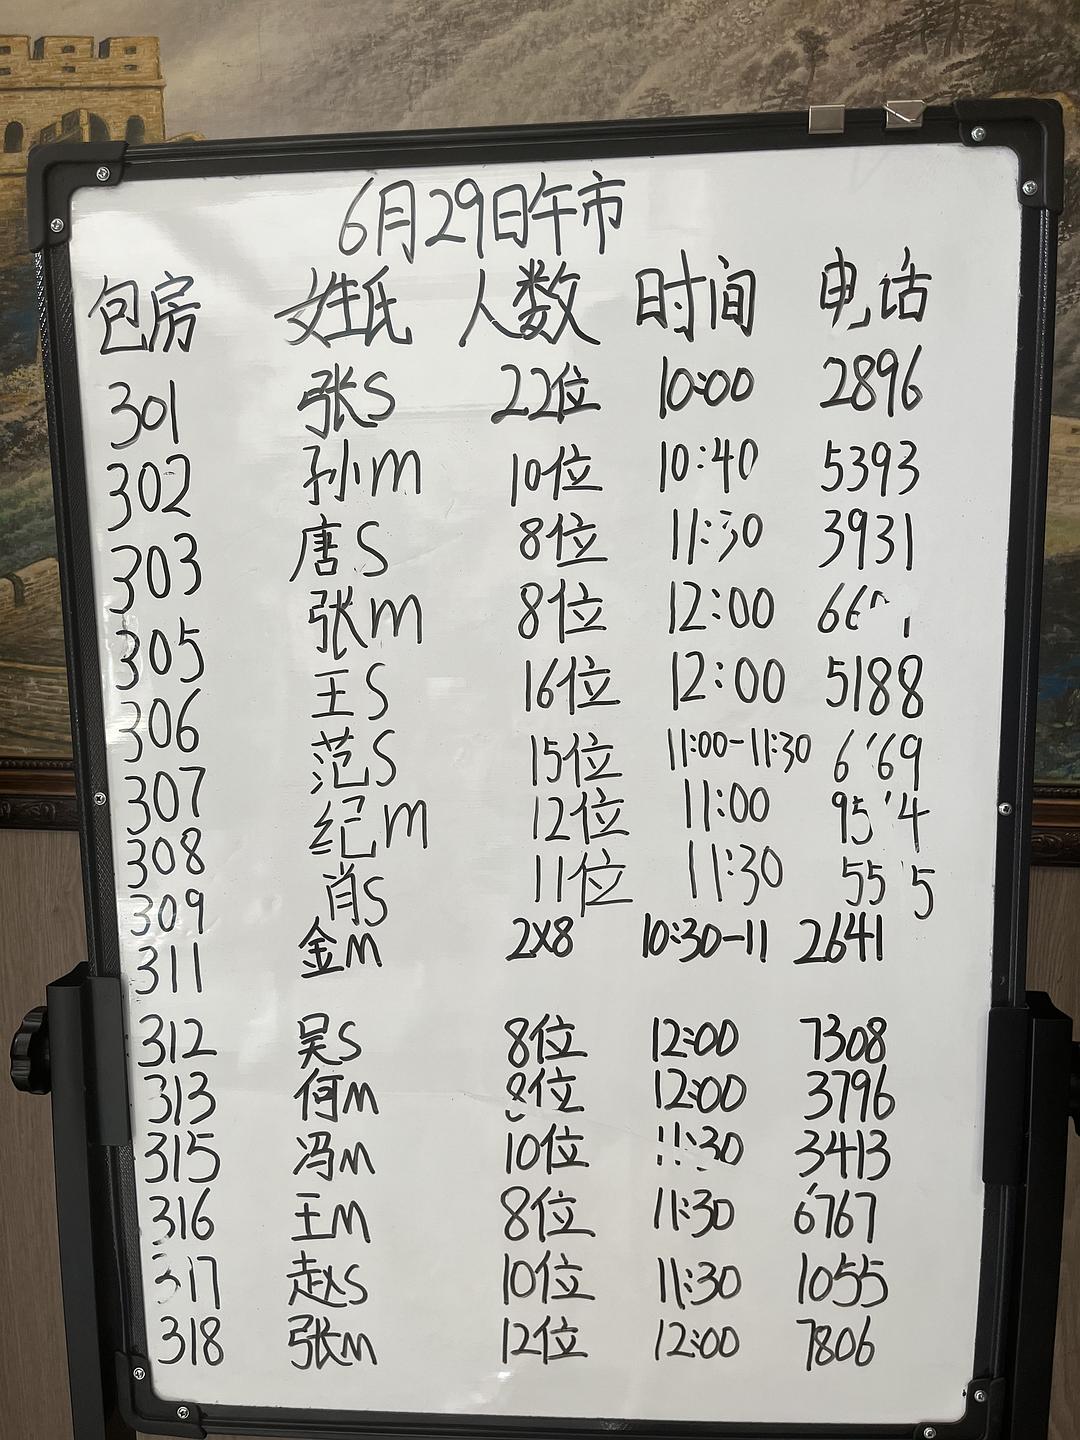 6月29日午市
包房 姓氏 人数 时间 电话
301 张S 22位 10:00 2896
302 孙M 10位 10:40 5393
303 唐S 8位 11:30 3931
305 张M 8位 12:00
306 王S 16位 12:00 5188
307 范S 15位 11:00-11:30
308 纪M 12位 11:00
309 肖S 11位 11:30
311 金M 2X8 10:30-11 2641
312 吴S 8位 12:00 7308
313 何M 8位 12:00 3796
315 冯M 10位 11:30 3413
316 王M 8位 11:30 6767
317 赵S 10位 11:30 1055
318 张M 12位 12:00 7806